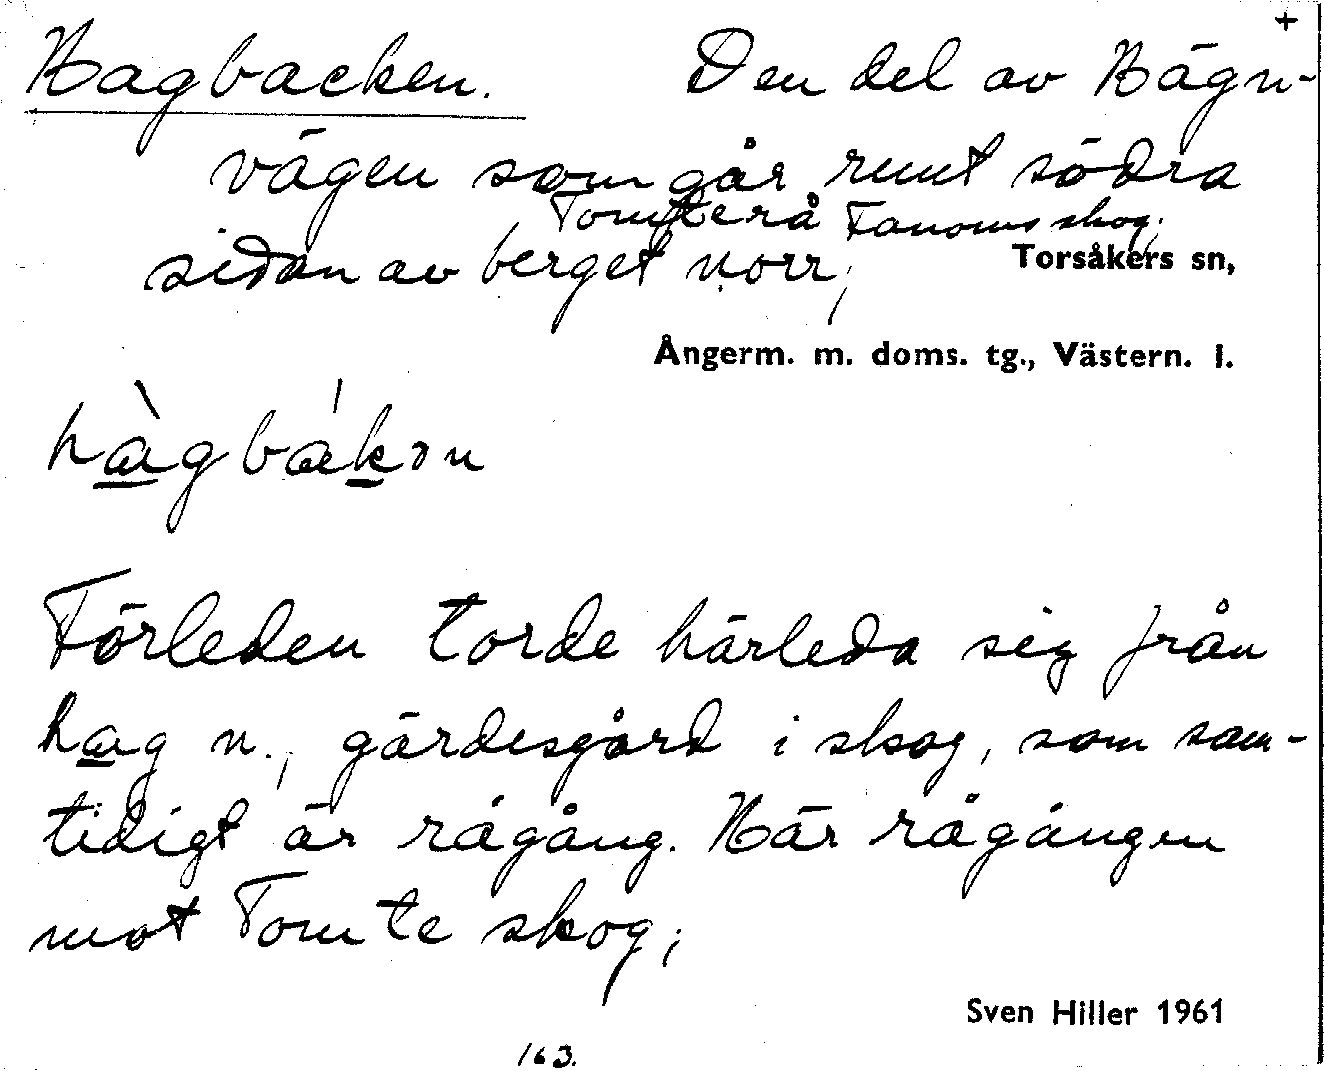 +
Hagbacken. Den del av Hägn-
vägen som går runt södra
Tomterå Fanoms skog;
sidan av berget norr; Torsåkers sn,
Ångerm. m. doms. tg., Västern. l.
hàgbákən
Förleden torde härleda sig från
hag n., gärdesgård i skog, som sam-
tidigt är rågång. Här rågången
mot Tomte skog;
Sven Hiller 1961
163.